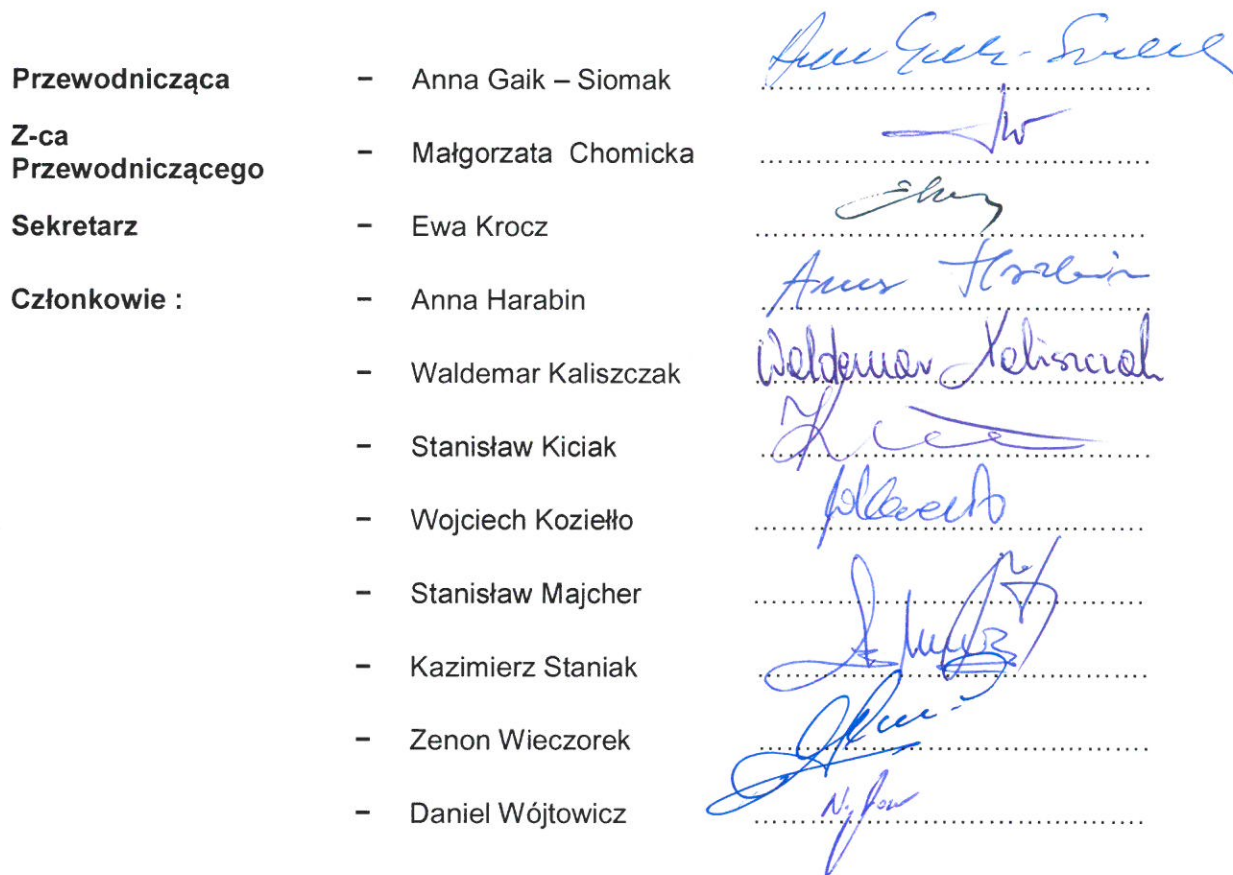 Przewodnicząca – Anna Gaik – Siomak
Z-ca
Przewodniczącego – Małgorzata Chomicka
Sekretarz – Ewa Krocz
Członkowie : – Anna Harabin Anna Harabin
– Waldemar Kaliszczak Waldemar Kaliszczak
– Stanisław Kiciak
– Wojciech Koziełło
– Stanisław Majcher
– Kazimierz Staniak
– Zenon Wieczorek
– Daniel Wójtowicz